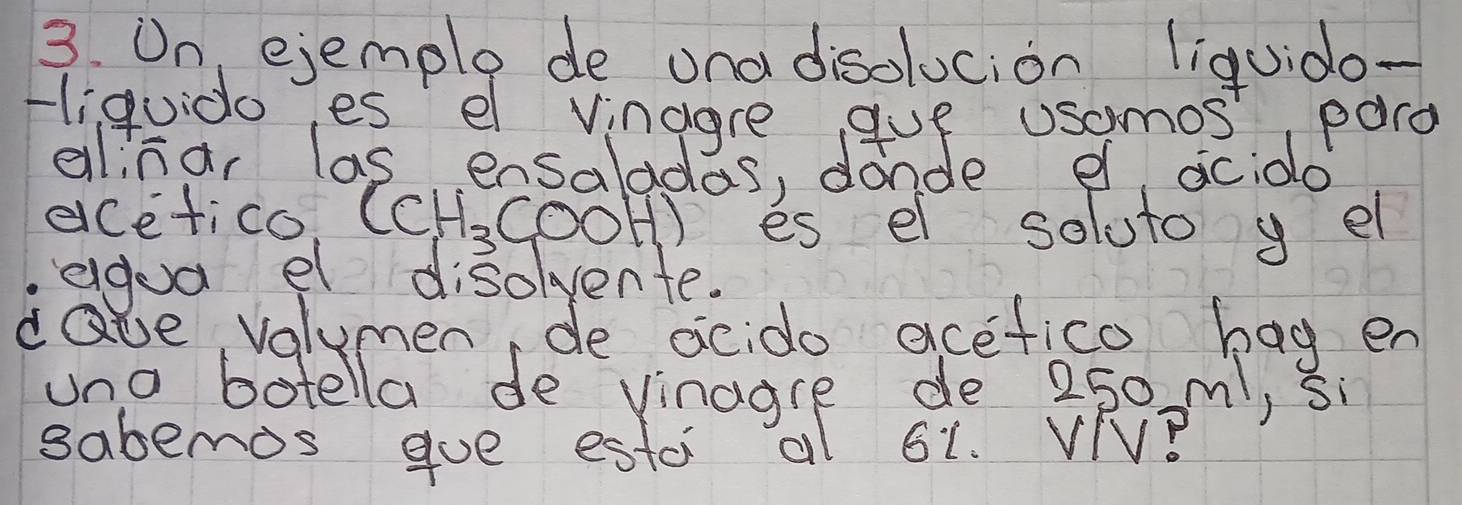 3. Un ejemplo de una disolución líquido-
-líquido es el vinagre que usamos para
aliñar las ensaladas, dónde el ácido
acético (CH₃COOH) es el soluto y el
agua el disolvente.
¿Que volumen de ácido acético hay en
una botella de vinagre de 250 ml, si
sabemos que está al 6%. V/V?